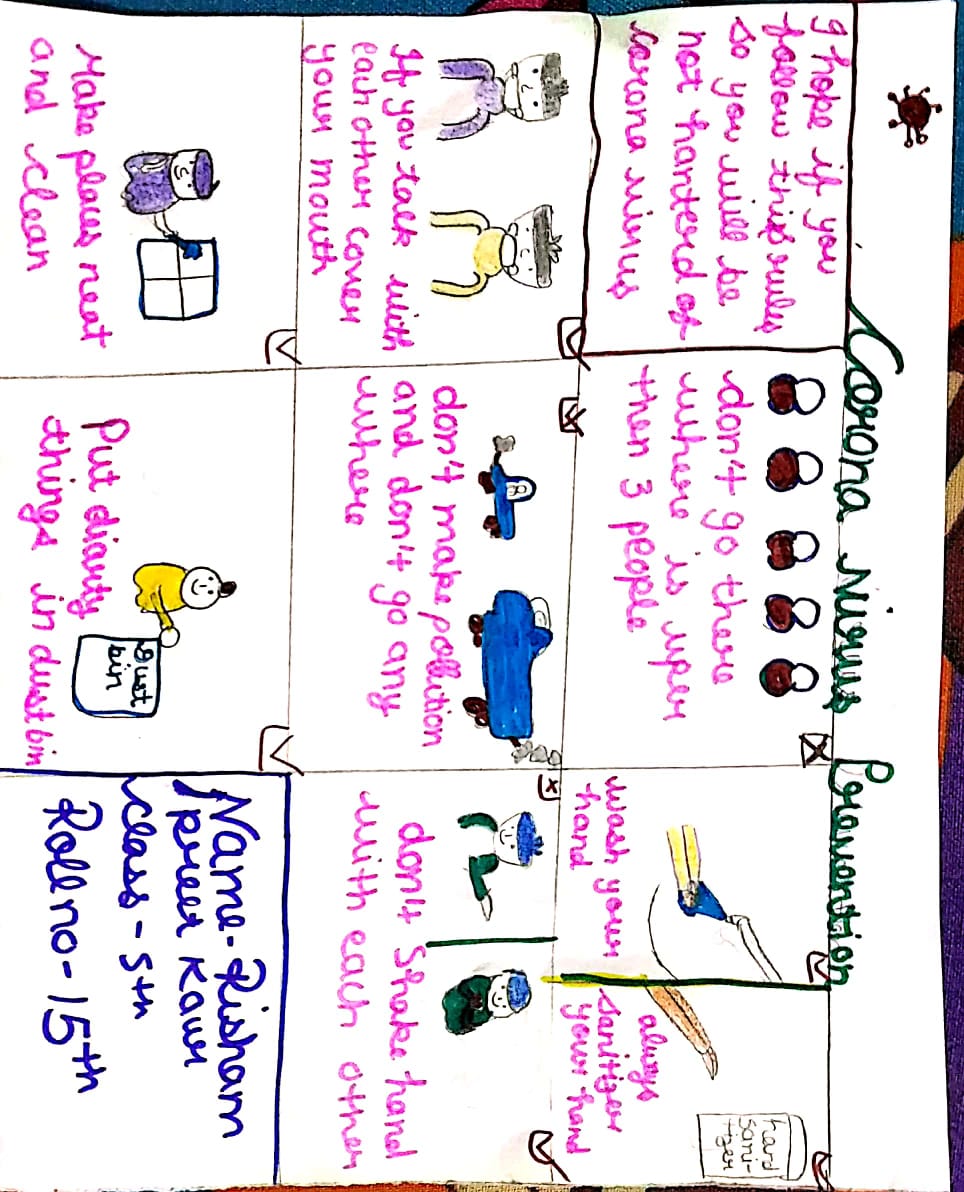 Corona Virus Pravention
I hope if you
follow this ruly
so you will be
not hanterd of
corona virus
don't go there
where is uper
then 3 people
wash your
hand
always
sanitizer
your hand
hand
Sani-
tzer
If you talk with
each other cover
your mouth
don't make pollution
and don't go any
where
don't Shake hand
with each other
Make places neat
and clean
Put diarty
things in dustbin
Dust
bin
Name-Risham
preet Kaur
class-5th
Roll no-15th